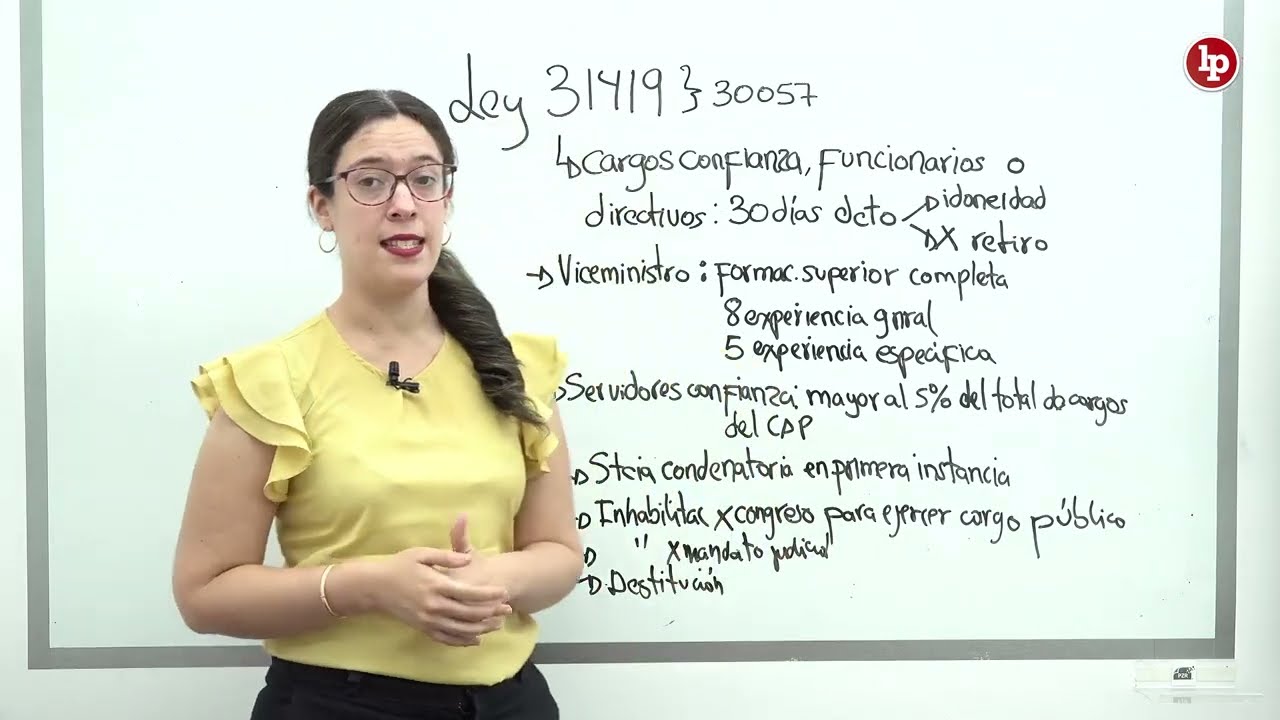 lp
Ley 31419 } 30057
↳ cargos confianza, funcionarios o
directivos: 30 días dcto → idoneidad
→ X retiro
→ Viceministro: formac. superior completa
8 experiencia gnral
5 experiencia específica
→ Servidores confianza: mayor al 5% del total de cargos
del CAP
→ Stcia condenatoria en primera instancia
→ Inhabilitac x congreso para ejercer cargo público
→ " x mandato judicial
→ Destitución
PZR